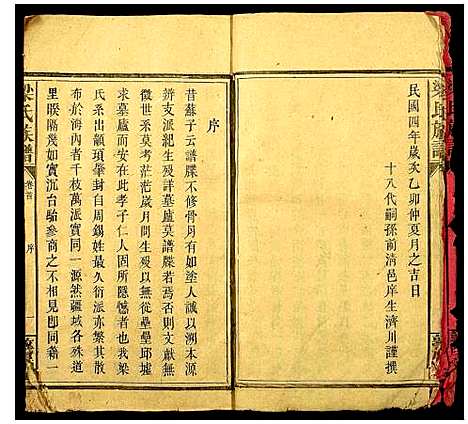 民國四年歲次乙卯仲夏月之吉日
十八代嗣孫前清邑庠生濟川謹撰
序
昔蘇子云譜牒不修骨月有如塗人誠以溯本源
辨支派紀生歿詳墓廬莫譜牒若焉否則文獻無
徵世系莫考茫茫歲月問生歿以無從壘壘邱墟
求墓廬而安在此孝子仁人固所隱憾者也我梁
氏系出顓頊肇封自周錫姓最久衍派亦繁其散
布於海內者千枝萬派實同一源然疆域各殊道
里睽隔幾如實沉台駘參商之不相見即同藉一
梁氏族譜
卷首
序
一
梁氏族譜